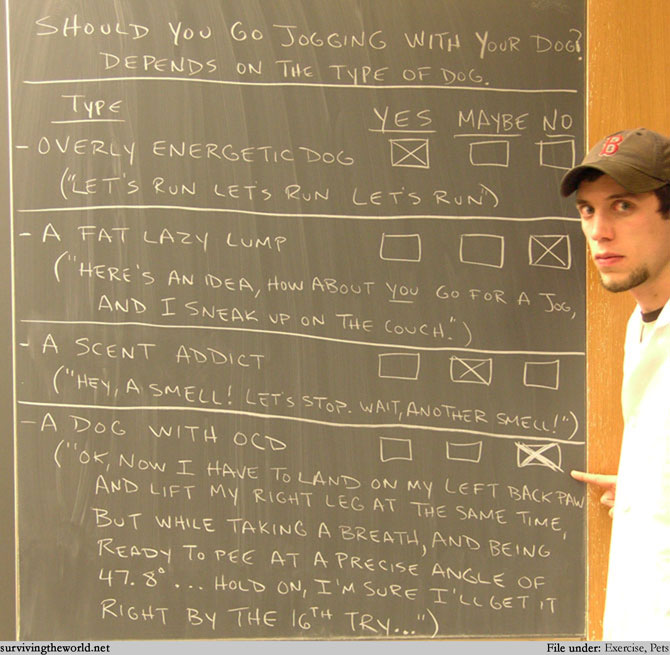 SHOULD YOU GO JOGGING WITH YOUR DOG?
DEPENDS ON THE TYPE OF DOG.
TYPE YES MAYBE NO
- OVERLY ENERGETIC DOG
("LET'S RUN LET'S RUN LET'S RUN")
- A FAT LAZY LUMP
("HERE'S AN IDEA, HOW ABOUT YOU GO FOR A JOG,
AND I SNEAK UP ON THE COUCH.")
- A SCENT ADDICT
("HEY, A SMELL! LET'S STOP. WAIT, ANOTHER SMELL!")
- A DOG WITH OCD
("OK, NOW I HAVE TO LAND ON MY LEFT BACK PAW
AND LIFT MY RIGHT LEG AT THE SAME TIME,
BUT WHILE TAKING A BREATH, AND BEING
READY TO PEE AT A PRECISE ANGLE OF
47.8°... HOLD ON, I'M SURE I'LL GET IT
RIGHT BY THE 16TH TRY...")
B
survivingtheworld.net
File under: Exercise, Pets